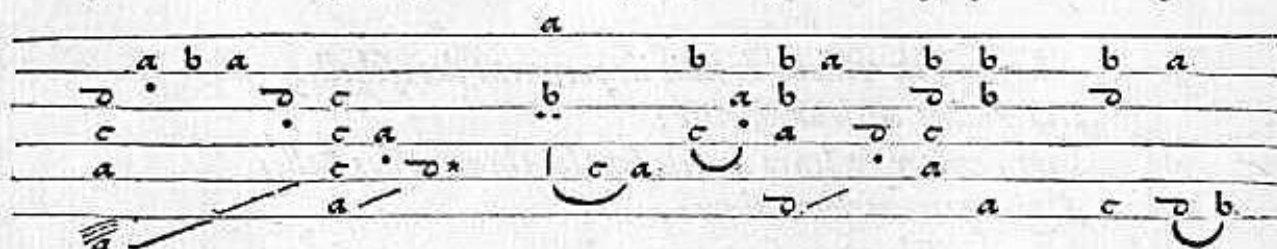 a
a b a b b a b b b a
d d c b a b d b d
c c a c a d c
a c d* c a a
a d a c d b
///a